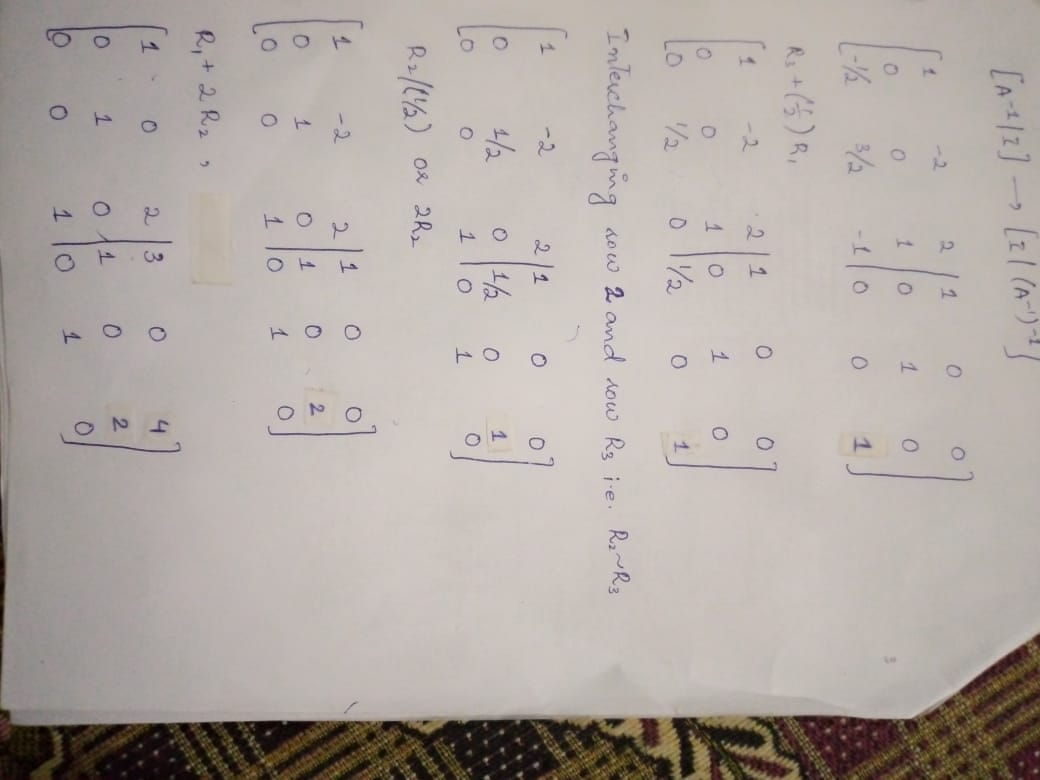 [A⁻¹|I] → [I|(A⁻¹)⁻¹]
[1 -2 2 | 1 0 0
0 0 1 | 0 1 0
-1/2 3/2 -1 | 0 0 1]
R₃ + (1/2) R₁
[1 -2 2 | 1 0 0
0 0 1 | 0 1 0
0 1/2 0 | 1/2 0 1]
Interchanging row 2 and row R₃ i.e. R₂~R₃
[1 -2 2 | 1 0 0
0 1/2 0 | 1/2 0 1
0 0 1 | 0 1 0]
R₂/(1/2) or 2R₂
[1 -2 2 | 1 0 0
0 1 0 | 1 0 2
0 0 1 | 0 1 0]
R₁ + 2R₂ ,
[1 0 2 | 3 0 4
0 1 0 | 1 0 2
0 0 1 | 0 1 0]